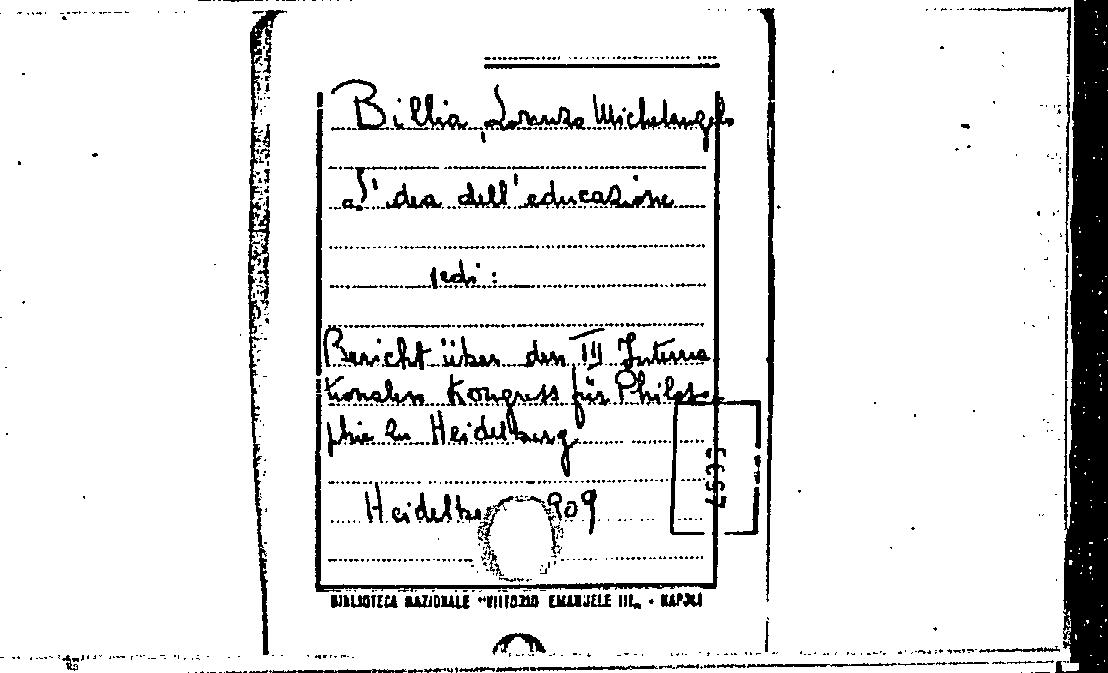 Billia, Lorenzo Michelangelo
L'idea dell'educazione
vedi:
Bericht über den III Interna
tionalen Kongress für Philoso
phie zu Heidelberg
Heidelberg 1909
BIBLIOTECA NAZIONALE "VITTORIO EMANUELE III" - NAPOLI